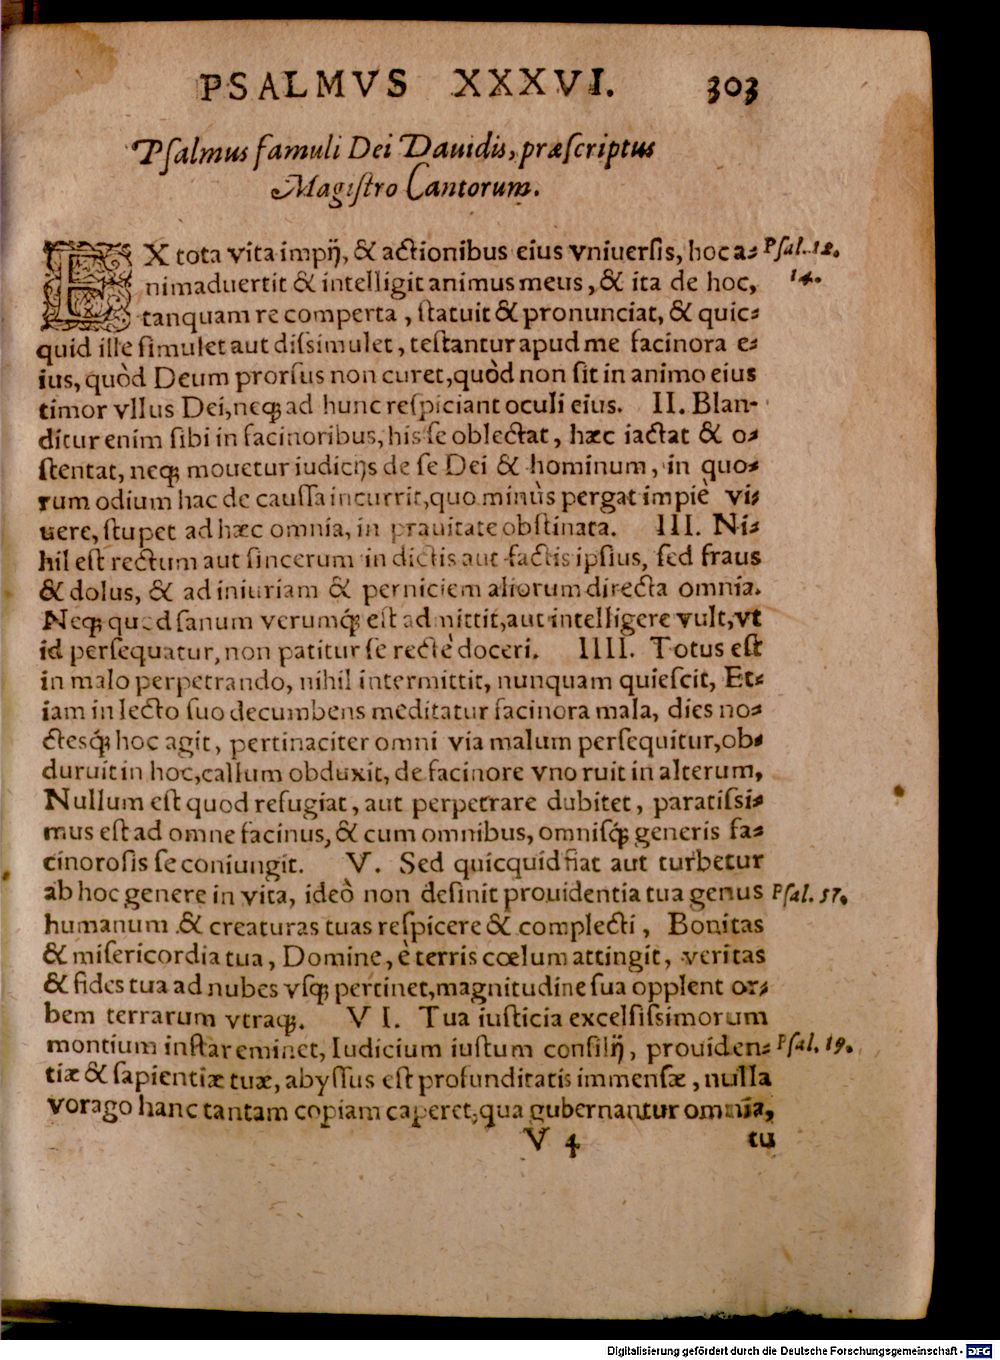 PSALMVS XXXVI. 303
Psalmus famuli Dei Dauidis, præscriptus
Magistro Cantorum.
EX tota vita impij, & actionibus eius vniuersis, hoc a- Psal. 12.
nimaduertit & intelligit animus meus, & ita de hoc, 14.
tanquam re comperta, statuit & pronunciat, & quic-
quid ille simulet aut dissimulet, testantur apud me facinora e-
ius, quòd Deum prorsus non curet, quòd non sit in animo eius
timor vllus Dei, neq; ad hunc respiciant oculi eius. II. Blan-
ditur enim sibi in facinoribus, his se oblectat, hæc iactat & o-
stentat, neq; mouetur iudicijs de se Dei & hominum, in quo-
rum odium hac de caussa incurrit, quo minùs pergat impiè vi-
uere, stupet ad hæc omnia, in prauitate obstinata. III. Ni-
hil est rectum aut sincerum in dictis aut factis ipsius, sed fraus
& dolus, & ad iniuriam & perniciem aliorum directa omnia.
Neq; quod sanum verumq́; est admittit, aut intelligere vult, vt
id persequatur, non patitur se rectè doceri. IIII. Totus est
in malo perpetrando, nihil intermittit, nunquam quiescit, Et-
iam in lecto suo decumbens meditatur facinora mala, dies no-
ctesq́; hoc agit, pertinaciter omni via malum persequitur, ob-
duruit in hoc, callum obduxit, de facinore vno ruit in alterum,
Nullum est quod refugiat, aut perpetrare dubitet, paratissi-
mus est ad omne facinus, & cum omnibus, omnisq́; generis fa-
cinorosis se coniungit. V. Sed quicquid fiat aut turbetur
ab hoc genere in vita, ideò non desinit prouidentia tua genus Psal. 57.
humanum & creaturas tuas respicere & complecti, Bonitas
& misericordia tua, Domine, è terris cœlum attingit, veritas
& fides tua ad nubes vsq; pertinet, magnitudine sua opplent or-
bem terrarum vtraq;. VI. Tua iusticia excelsissimorum
montium instar eminet, Iudicium iustum consilij, prouiden- Psal. 19.
tiæ & sapientiæ tuæ, abyssus est profunditatis immensæ, nulla
vorago hanc tantam copiam caperet, qua gubernantur omnia,
V 4 tu
Digitalisierung gefördert durch die Deutsche Forschungsgemeinschaft - DFG